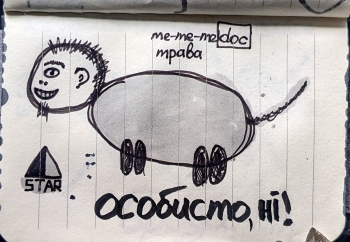 me-me-me doc
трава
STAR
особисто, ні!